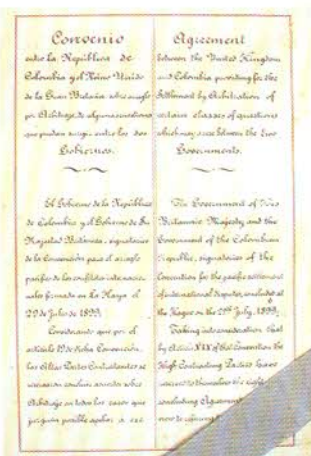 Convenio
entre la República de
Colombia y el Reino Unido
de la Gran Bretaña sobre arreglo
por Arbitraje de algunas cuestiones
que puedan surgir entre los dos
Gobiernos.
El Gobierno de la República
de Colombia y el Gobierno de Su
Majestad Británica, signatarios
de la Convención para el arreglo
pacífico de los conflictos internacio-
nales firmada en La Haya el
29 de Julio de 1899;
Considerando que por el
artículo 19 de dicha Convención,
las Altas Partes Contratantes se
reservaron concluir acuerdos sobre
Arbitraje en todos los casos que
juzguen posible
Agreement
between the United Kingdom
and Colombia providing for the
Settlement by Arbitration of
certain classes of questions
which may arise between the two
Governments.
The Government of His
Britannic Majesty and the
Government of the Colombian
Republic, signatories of the
Convention for the pacific settlement
of international disputes, concluded at
the Hague on the 29th July, 1899;
Taking into consideration that
by Article XIX of that Convention the
High Contracting Parties have
reserved to themselves the right
concluding Agreement